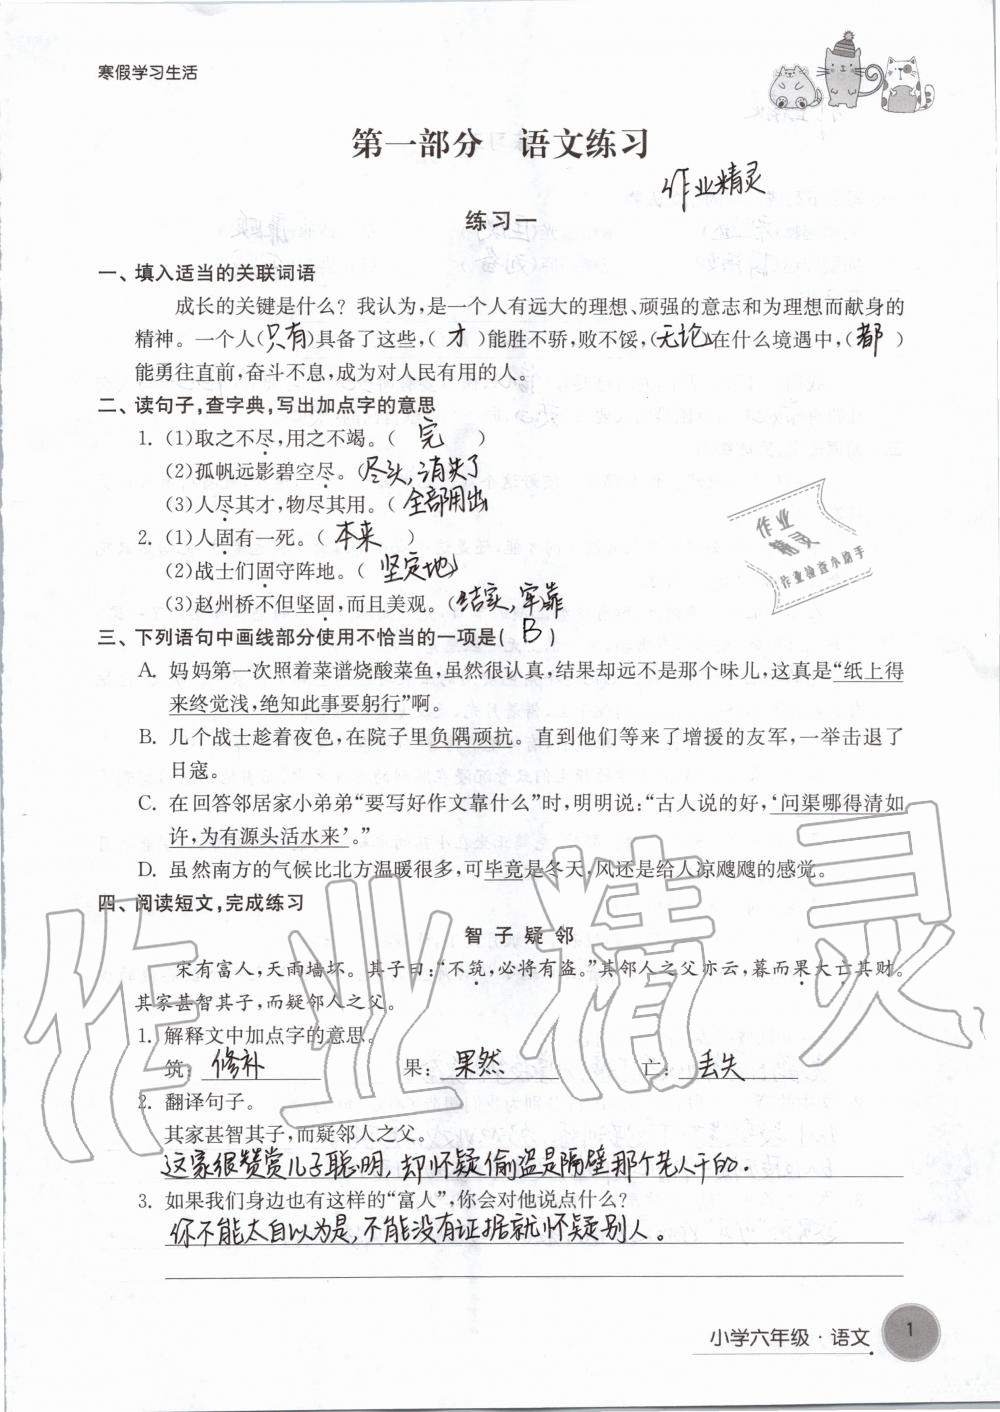 寒假学习生活
第一部分 语文练习
作业精灵
练习一
一、填入适当的关联词语
成长的关键是什么？我认为，是一个人有远大的理想、顽强的意志和为理想而献身的
精神。一个人(只有)具备了这些，( 才 )能胜不骄，败不馁，(无论)在什么境遇中，( 都 )
能勇往直前，奋斗不息，成为对人民有用的人。
二、读句子，查字典，写出加点字的意思
1. (1)取之不尽，用之不竭。( 完 )
(2)孤帆远影碧空尽。(尽头，消失了
(3)人尽其才，物尽其用。( 全部用出
2. (1)人固有一死。( 本来 )
(2)战士们固守阵地。( 坚定地)
(3)赵州桥不但坚固，而且美观。(结实，牢靠
三、下列语句中画线部分使用不恰当的一项是( B )
A. 妈妈第一次照着菜谱烧酸菜鱼，虽然很认真，结果却远不是那个味儿，这真是“纸上得
来终觉浅，绝知此事要躬行”啊。
B. 几个战士趁着夜色，在院子里负隅顽抗。直到他们等来了增援的友军，一举击退了
日寇。
C. 在回答邻居家小弟弟“要写好作文靠什么”时，明明说：“古人说的好，‘问渠哪得清如
许，为有源头活水来’。”
D. 虽然南方的气候比北方温暖很多，可毕竟是冬天，风还是给人凉飕飕的感觉。
四、阅读短文，完成练习
智子疑邻
宋有富人，天雨墙坏。其子曰：“不筑，必将有盗。”其邻人之父亦云，暮而果大亡其财。
其家甚智其子，而疑邻人之父。
1. 解释文中加点字的意思。
筑： 修补 果： 果然 亡： 丢失
2. 翻译句子。
其家甚智其子，而疑邻人之父。
这家很赞赏儿子聪明，却怀疑偷盗是隔壁那个老人干的.
3. 如果我们身边也有这样的“富人”，你会对他说点什么？
你不能太自以为是，不能没有证据就怀疑别人。
小学六年级·语文 1
作业
精灵
作业检查小助手
作业精灵